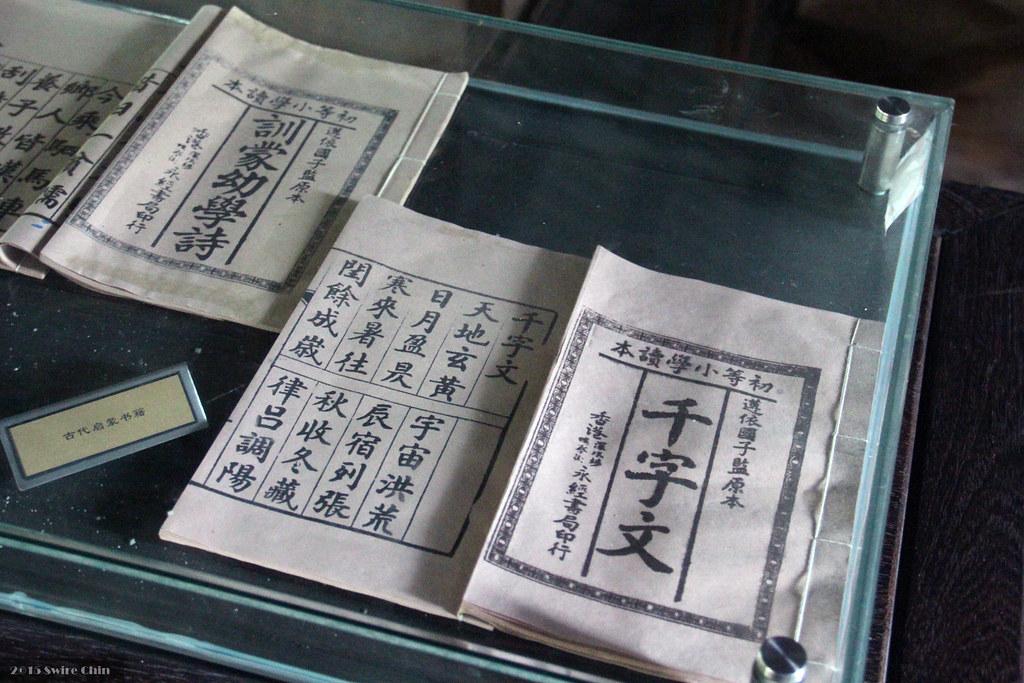 初等小學讀本
遵依國子監原本
訓蒙幼學詩
永經書局印行
千字文
天地玄黃
宇宙洪荒
日月盈昃
辰宿列張
寒來暑往
秋收冬藏
閏餘成歲
律呂調陽
初等小學讀本
遵依國子監原本
千字文
香港
永經書局印行
古代启蒙书籍
2015 Swire Chin